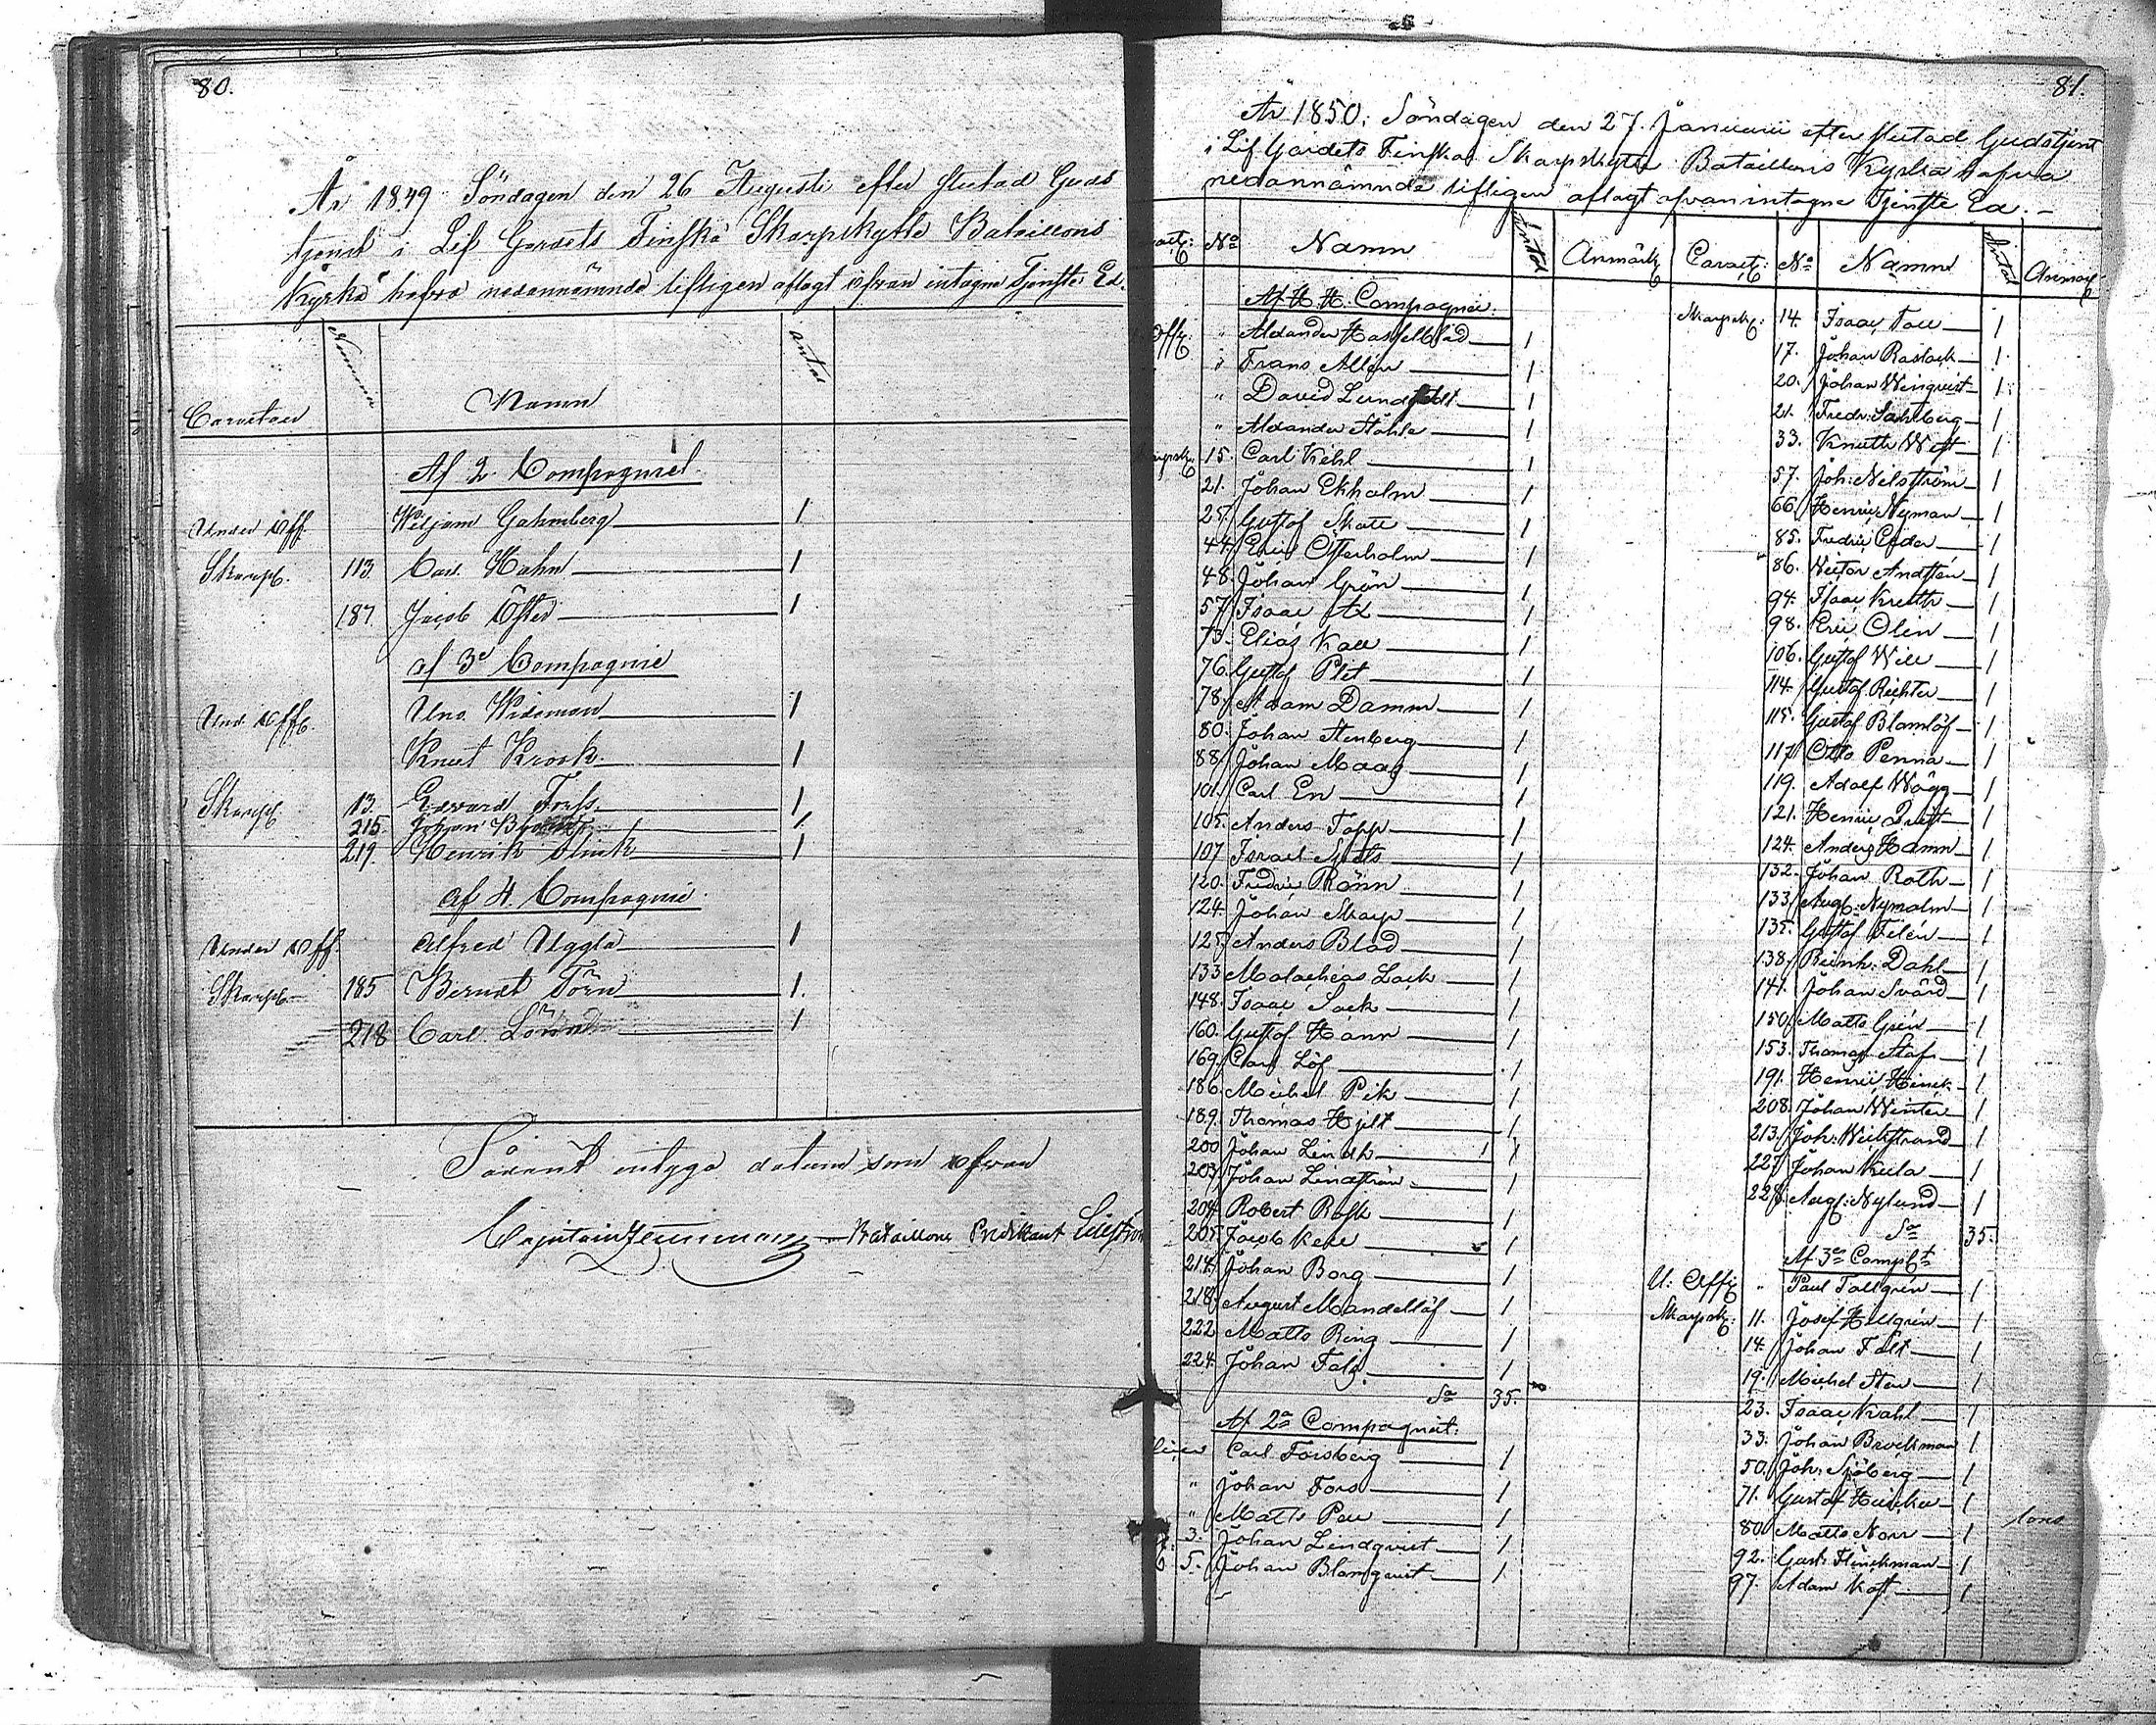 80.
År 1849 Söndagen den 26 Augusti efter slutad Guds
tjenst i Lif Gardets Finska Skarpskytte Bataillons
Kyrka hafva nedannämnde lifligen aflagt ofvan intagne Tjenste Ed.
Caracteer Nummer Namn Antal
Af 2 Compagniet
Under Off. Wiljam Gahmberg 1
Skarpsk. 113 Carl Hahn 1
187 Jacob Öster 1
af 3e Compagnie
Und. Off. Uno Wideman 1
Knut Krook 1
Skarpsk. 13. Edvard Forss 1
215. Johan 1
219. Henrik Slink 1
af 4 Compagnie
Under Off. Alfred Uggla 1
Skarpsk. 185 Berndt Törn 1.
218 Carl 1
intyga datum som ofvan
Capitain Bataillons Predikant
81.
År 1850, Söndagen den 27. Januarii efter slutad Gudstjenst
i Lif Gardets Finska Skarpskytte Bataillons Kyrka hafva
nedannämnde lifligen aflagt ofvan intagne Tjenste Ed.
No Namn Antal Anmärk
Af H. H. Compagnie.
Off: " Alexander Hasselblad 1
" Frans Allén 1
" David 1
" Alexander Ståhle 1
15. Carl Kihl 1
21. Johan Ekholm 1
25. Gustof Skatt 1
44. Eric Österholm 1
48. Johan Grön 1
57. Isaac Ax 1
73. Elias Kall 1
76. Gustof Plit 1
78. Adam Damm 1
80. Johan Stenberg 1
88. Johan Maag 1
101. Carl En 1
105. Anders Topp 1
107 Israel Spets 1
120. Fredric Rönn 1
124. Johan Skarp 1
125. Anders Blad 1
133 Malachias Lack 1
148. Isaac Sack 1
160. Gustof Hann 1
169. Carl Löf 1
186. Michel Pik 1
189. Thomas Hjelt 1
200 Johan Lindh 1
203. Johan Lindström 1
204 Robert Rosk 1
205. Jacob Keke 1
214. Johan Borg 1
218. August Mandellöf 1
222 Matts Ring 1
224. Johan Falz 1
Sa 35.
Af 2a Compagniet:
Carl Forsberg 1
" Johan Fors 1
" Matts Peu 1
3. Johan Lindqvist 1
5. Johan Blomqvist 1
Caract: No Namn Antal Anmärk
Skarpsk: 14. Isaac Tall 1
17. Johan Rastack 1
20. Johan Winqvist 1
21. Fredr: Sahlberg 1
33. Knuth West 1
57. Joh: Nelström 1
66. Henric Nyman 1
85. Fredric Ceder 1
86. Victor Andsten 1
94. Isaac Kretth 1
98. Eric Olin 1
106. Gustof Will 1
114. Gustof Richter 1
115. Gustof Blomlöf 1
117. Otto Penna 1
119. Adolf Wågg 1
121. Henric Drift 1
124. Anders Hamn 1
132. Johan Roth 1
133. Aug: Nymalm 1
135. Gustof Felén 1
138. Reinh: Dahl 1
141. Johan Svärd 1
150. Matts Grén 1
153. Thomas Staf 1
191. Henric Hinck 1
208. Johan Winter 1
213. Joh: Wickstrand 1
227. Johan Kula 1
228. Aug: Nylund 1
Sa 35.
Af 3e Compt
U: Off: " Paul Tallgrén 1
Skarpsk: 11. Josef Hellgrén 1
14. Johan Fält 1
19. Michel Sten 1
23. Isaac Krahl 1
33. Johan Brockman 1
50. Joh: Sjöberg 1
71. Gustaf 1
80. Matts Norr 1
92. Gust: Flinckman 1
97. Adam Kast 1